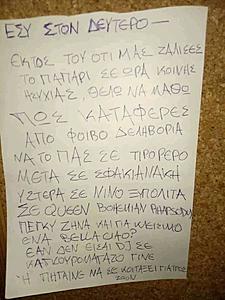 ΕΣΥ ΣΤΟΝ ΔΕΥΤΕΡΟ —
ΕΚΤΟΣ ΤΟΥ ΟΤΙ ΜΑΣ ΖΑΛΙΣΕΣ
ΤΟ ΠΑΠΑΡΙ ΣΕ ΩΡΑ ΚΟΙΝΗΣ
ΗΣΥΧΙΑΣ, ΘΕΛΩ ΝΑ ΜΑΘΩ
ΠΩΣ ΚΑΤΑΦΕΡΕΣ
ΑΠΟ ΦΟΙΒΟ ΔΕΛΗΒΟΡΙΑ
ΝΑ ΤΟ ΠΑΣ ΣΕ ΤΡΟΡΕΡΟ
ΜΕΤΑ ΣΕ ΣΦΑΚΙΑΝΑΚΗ
ΥΣΤΕΡΑ ΣΕ ΝΙΝΟ ΞΥΠΟΛΙΤΑ
ΣΕ QUEEN BOHEMIAN RHAPSODY
ΠΕΓΚΥ ΖΗΝΑ ΚΑΙ ΓΙΑ ΚΛΕΙΣΙΜΟ
ΕΝΑ BELLA CIAO?
ΕΑΝ ΔΕΝ ΕΙΣΑΙ DJ ΣΕ
ΚΑΤΣΟΥΡΟΜΑΓΑΖΟ ΓΙΝΕ
Ή ΠΗΓΑΙΝΕ ΝΑ ΣΕ ΚΟΙΤΑΞΕΙ ΓΙΑΤΡΟΣ